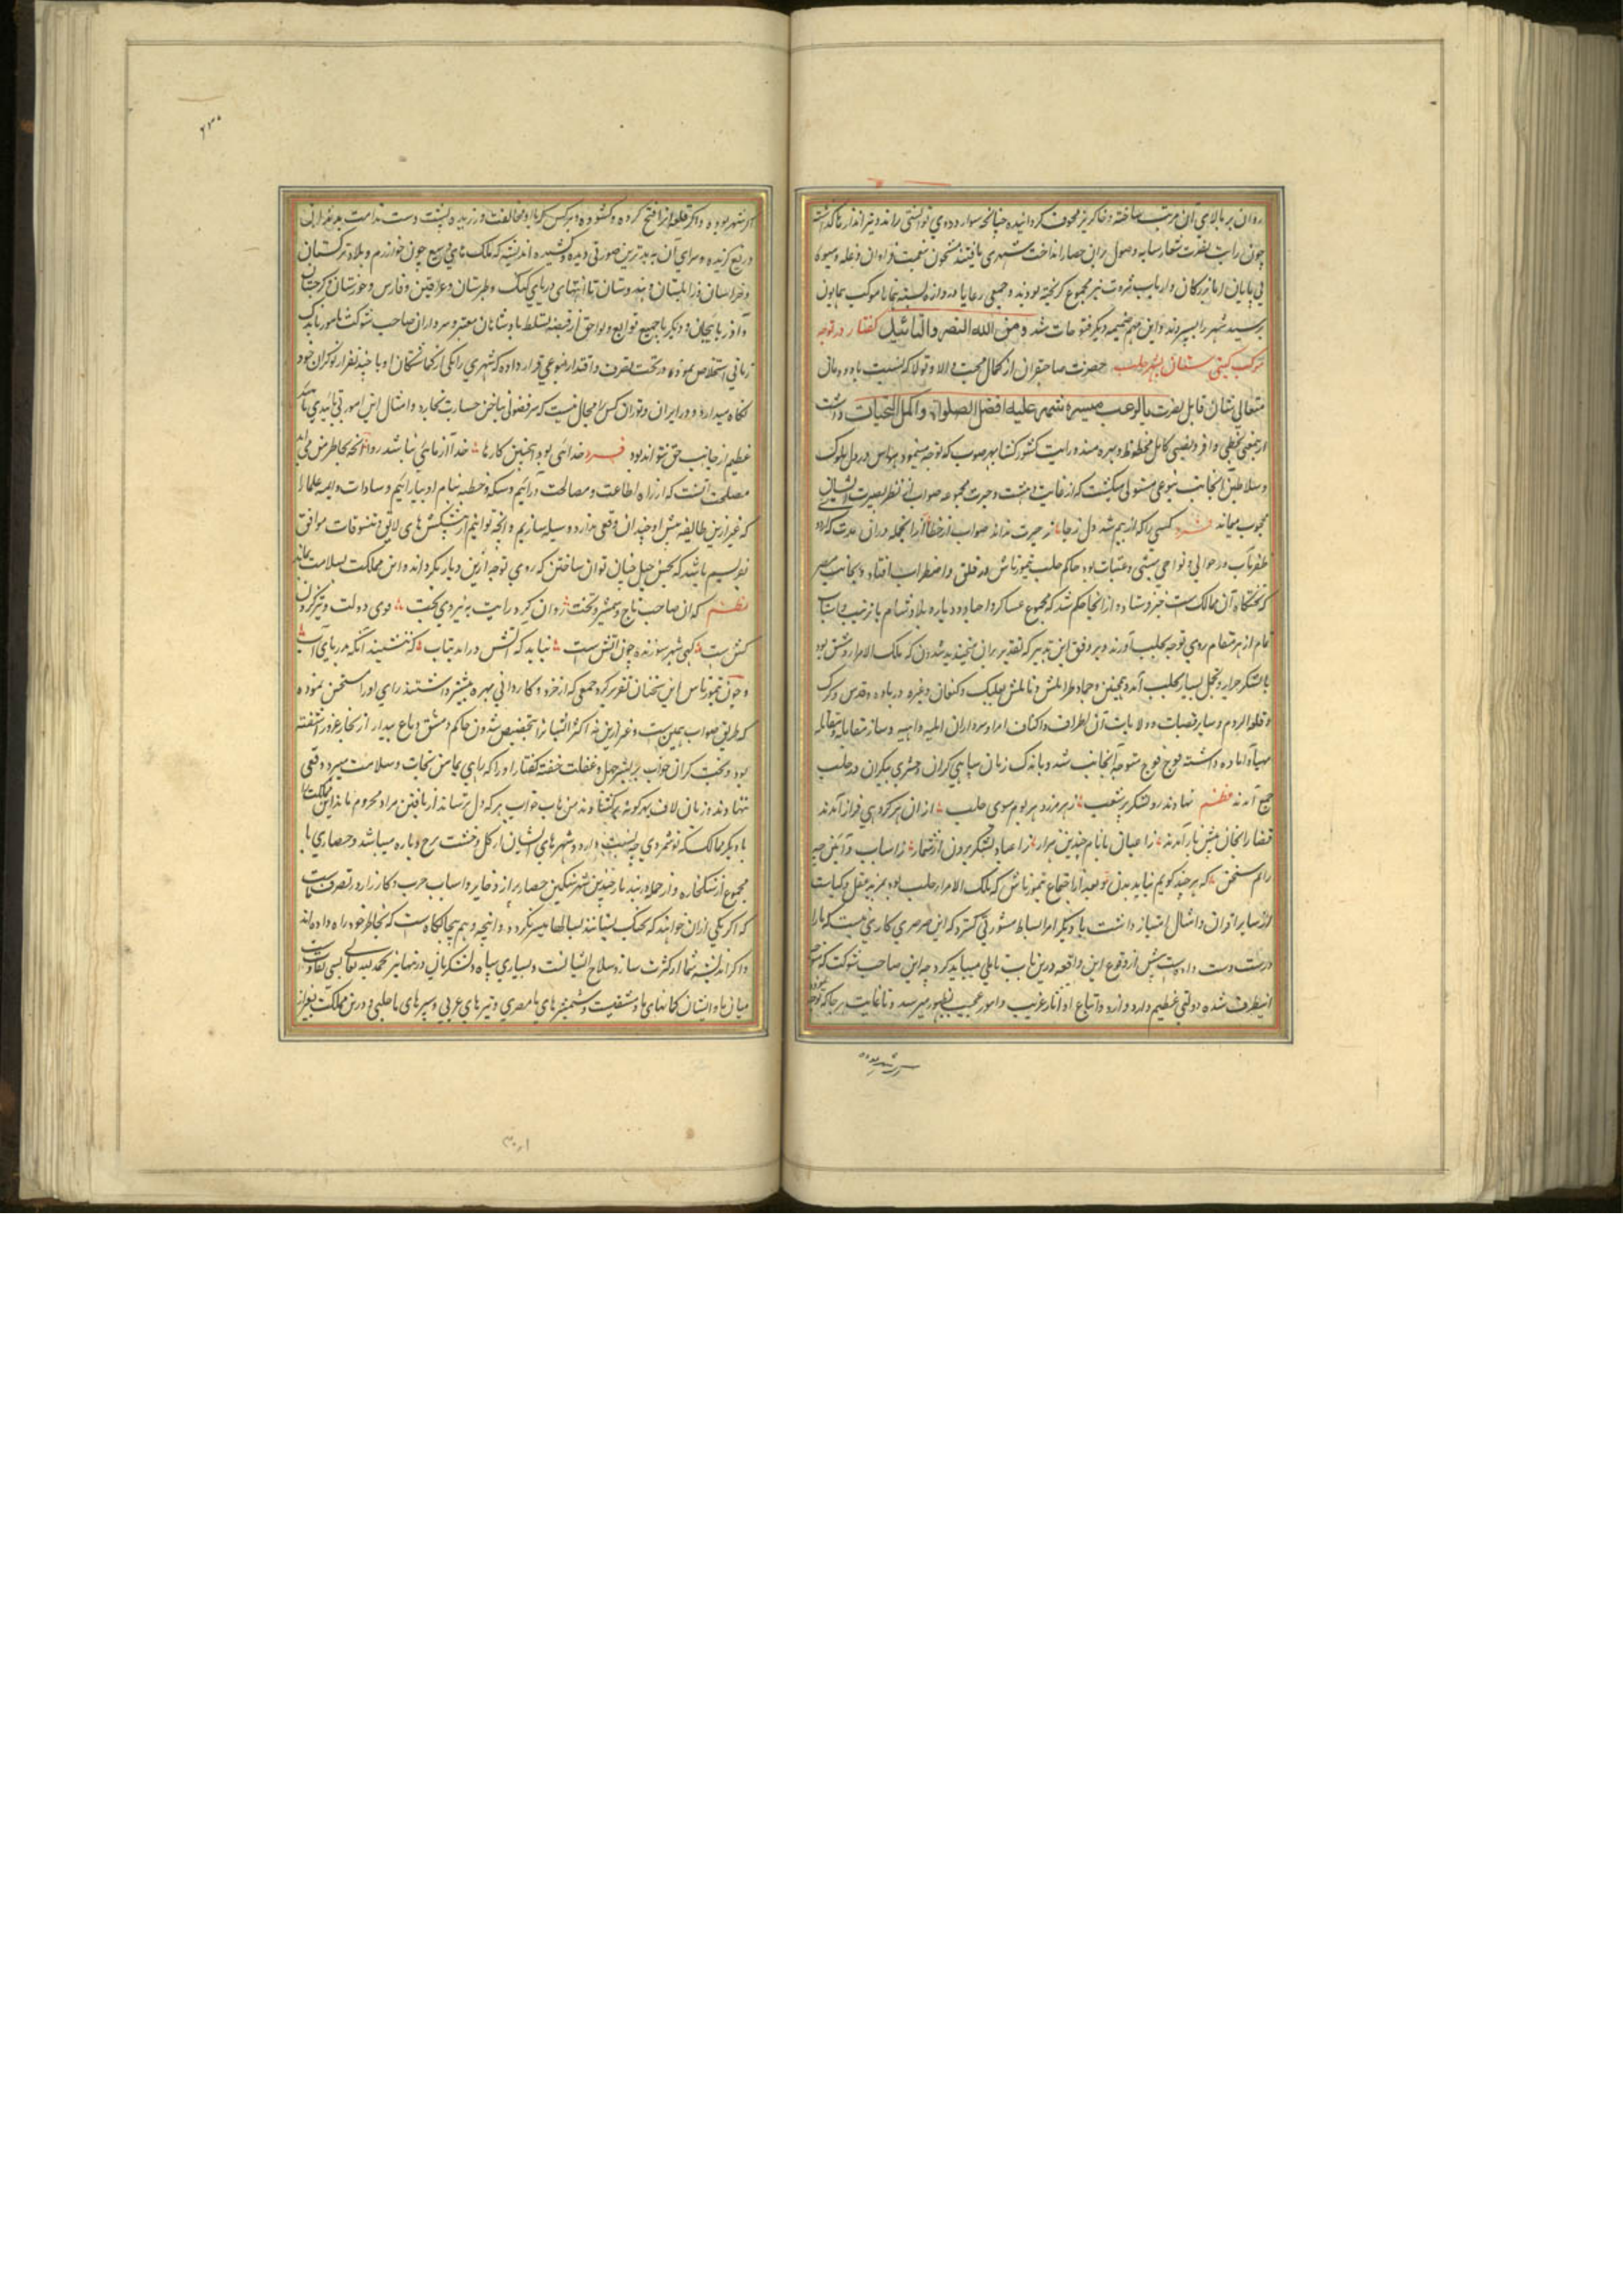 روان بر بالای آن مرتب ساخته و خاکریز مجوف گردانیده چنانچه سوار دروی توانستی راند و تیرانداز تا گذشت
چون رایت نصرت شعار سایه وصول بران حصار انداخت شهری یافتند مشحون بنعمت فراوان و غله و میوه
بی پایان اما بزرگان و ارباب ثروت نیز مجموع گریخته بودند و جمعی رعایا دروازه بسته تا موکب همایون
برسید شهر را بسپردند و این مهم ضمیمه دیگر فتوحات شد ومن الله النصر والتأیید گفتار در توجه
موکب گیتی ستان بشهر حلب حضرت صاحبقران از کمال محبت و ولا و تولا که نسبت با دودمان
متعالی نشان قایل نصرت بالرعب مسیرة شهر علیه افضل الصلوات واکمل التحیات داشت
ازین معنی بحظی وافر و نصیبی کامل محظوظ و بهره مند و رایت کشورگشا بهر صوب که توجه مینمود هراس در دل ملوک
و سلاطین آنجانب بنوعی مستولی میگشت که از غایت دهشت و حیرت مجموعه صواب از نظر بصیرت ایشان
محجوب میماند فرد کسی را که از بیم شد دل ز جا ز حیرت نداند صواب از خطا از انجمله دران مدت که اردوی
ظفرمآب در حوالی و نواحی بهسنی و عنتاب بود حاکم حلب تمورتاش در قلق و اضطراب افتاد و بجانب مصر
که تختگاه آن ممالک است خبر فرستاد و از انجا حکم شد که مجموع عساکر و اجناد دیار و بلاد شام با ترتیب و اسباب
تمام از هر مقام روی توجه بحلب آورند و بر وفق این تدبیر که تقدیر بران میخندید شدون که ملک الامراء دمشق بود
با لشکر جرار و تجمل بسیار بحلب آمد و همچنین و حما و طرابلس و نابلس بعلبک و کنعان و غیره در باده و قدس و کرک
و قلعة الروم و سایر قصبات و ولایات آن اطراف و اکناف امرا و سرداران و سازمقابله و مقاتله
مهیا و آماده داشته فوج فوج متوجه آنجانب شد و باندک زمان سپاهی گران و حشری بیکران در حلب
جمع آمدند نظم نهادند رو لشکر پر شغب ز هر مرز و هر بوم سوی حلب از ان هر گروهی فراز آمدند
قضا را بجان پیش باز آمدند ز اعیان با نام چندین هزار ز اعیاد لشکر برون از شمار ز اسباب و آئین
رانم سخن که هر چند گویم نیاید ببن و بعد از اجتماع تمورتاش که ملک الامراء حلب بود بمزید عقل و کیاست
از سایر اقران و امثال امتیاز داشت با دیگر امرا بساط مشورتی گسترد که این سرسری کاری نیست که ما را
درست دست داده است پیش از وقوع این واقعه درین باب تاملی میباید کرد چه این صاحب شوکت که
اینطرف شده دولتی عظیم دارد و از او و اتباع او آثار غریب و امور عجیب بظهور میرسد و تا غایت بهر جا که توجه نموده
سرشهر بوده
۲۳۵
اگر شهر بوده و اگر قلعه انرا فتح کرده و گشوده و هر کس که با او مخالفت ورزیده پشت دست ندامت بدندان
دریغ گزیده و سزای آن به بدترین صورتی دیده و کشیده اندیشه که ملک های وسیع چون خوارزم و بلاد ترکستان
و خراسان و زابلستان و هندوستان تا انتهای دریای گنگ و طبرستان و عراقین و فارس و خوزستان و گرجستان
و آذربایجان و دیار بکر با جمیع توابع و لواحق از قبضه تسلط پادشاهان معتبر و سرداران صاحب شوکت نامور باندک
زمانی استخلاص نموده در تحت تصرف و اقتدار بنوعی قرار داده که شهری را یکی از گماشتگان او با چند نفر از نوکران خود
نگاه میدارد و در ایران و توران کس را مجال نیست که سر فضولی بناخن جسارت بخارد و امثال این امور بی تأییدی
عظیم از جانب حق نتواند بود فرد خدائی بود اینچنین کارها خدا آزمائی نباشد روا آنچه بخاطر من میرسد
مصلحت آنست که از راه اطاعت و مصالحت درآئیم و سکه و خطبه بنام او بیارائیم و سادات و ایمه و علما را
که غیر ازین طایفه پیش او چندان وقعی ندارد وسیله سازیم و انچه توانیم از پیشکش های لایق و تنسوقات موافق
بفرستیم باشد که بحسن حیل چنان توان ساختن که روی توجه ازین دیار بگرداند و این مملکت بسلامت بماند
نظم که ان صاحب تاج و شمشیر و تخت روان کرد رایت به نیروی بخت قوی دولت و تیز گردن
کش است گهی شهر سوزنده چون آتش است نباید که آتش در اید بتاب که ننشیند آنگه بدریای آب
و چون تمورتاش این سخنان تقریر کرد جمعی که از خرد و کاردانی بهره بیشتر داشتند رای او را استحسن نموده
که طریق صواب همین است و غیر ازین نه اکثر الیشان بتخصیص شدون حاکم دمشق دماغ پندار از بخار غرور آشفته
بود و بخت گران خواب بر بستر جهل و غفلت خفته گفتار او را که راهی بمامن نجات و سلامت میبرد وقعی
ننهادند و زبان لاف بهرگونه بر گشادند من باب جواب هر که دل ترساند از یافتن مراد محروم ماند این مملکت را
با دیگر ممالک که تو شمردی چه نسبت دارد و شهرهای ایشان از گل و خشت برج و باره میباشد و حصارهای ما
مجموع از سنگ خاره و از جمله بدر چندین شهر سنگین حصار پر از ذخایر و اسباب حرب و کارزار در تصرف ماست
که اگر یکی از ان خواهند که بجنگ بستانند بسالها میسر نگردد و انچه وهم بیجایگاه است که بخاطر خود راه داده اند
و اگر اندیشه شما از کثرت ساز و سلاح ایشانست و بسیاری سپاه و لشکریان درینها نیز بحمد الله تعالی بسی تفاوتست
میان ما و ایشان کمانهای ما دمشقیست و شمشیرهای ما مصری و تیرهای عربی و سپرهای ما حلبی و درین مملکت بغیر از